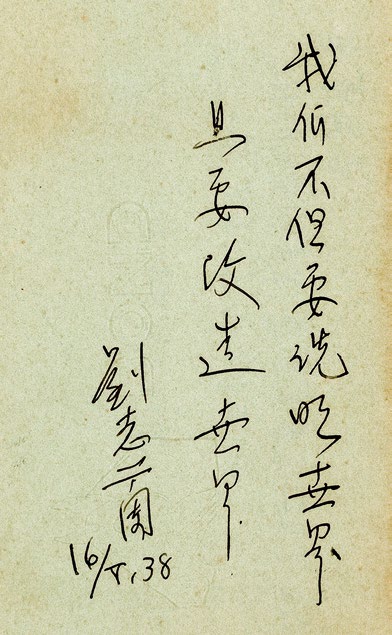 我们不但要说明世界
且要改造世界
劉志
16/V.38